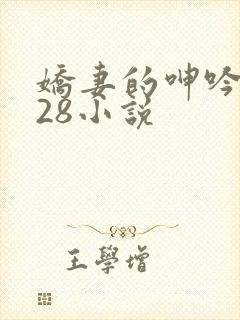 嬌妻的呻吟
28小說
王學增